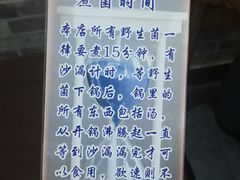 煮菌时间
本店所有野生菌一
律要煮15分钟,有
沙漏计时,等野生
菌下锅后,锅里的
所有东西包括汤,
从开锅沸腾起一直
等到沙漏漏完才可
以食用,欲速则不